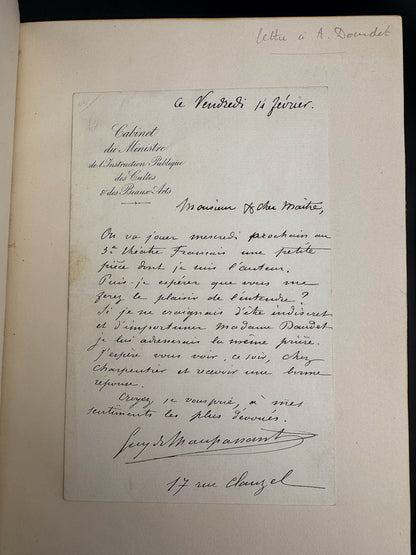 lettre à A. Daudet
ce Vendredi 14 février.
Cabinet
du Ministre
de l'Instruction Publique
des Cultes
& des Beaux-Arts
Monsieur & cher Maître,
On va jouer mercredi prochain au
3e théâtre Français une petite
pièce dont je suis l'auteur.
Puis-je espérer que vous me
ferez le plaisir de l'entendre ?
Si je ne craignais d'être indiscret
et d'importuner Madame Daudet
je lui adresserais la même prière.
J'espère vous voir, ce soir, chez
Charpentier et recevoir une bonne
réponse.
Croyez, je vous prie, à mes
sentiments les plus dévoués.
Guy de Maupassant
17 rue Clauzel